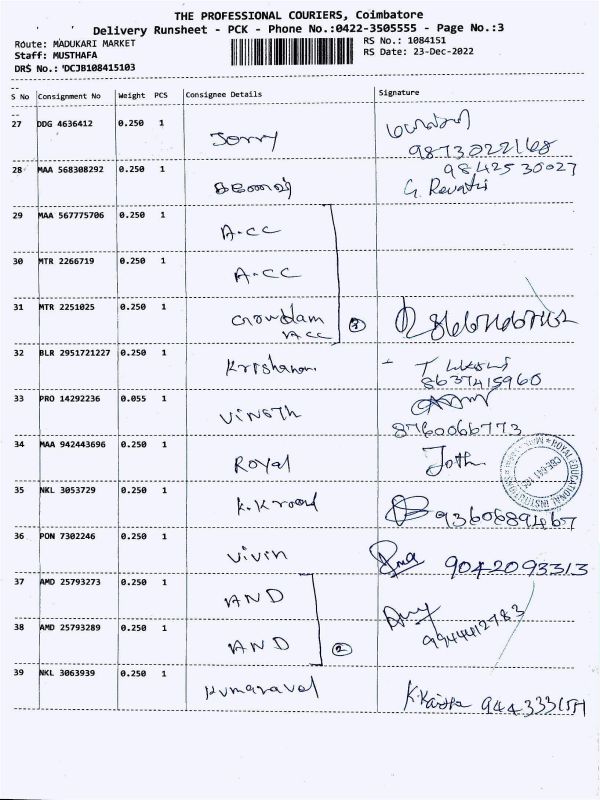 THE PROFESSIONAL COURIERS, Coimbatore
Delivery Runsheet - PCK - Phone No.:0422-3505555 - Page No.:3
Route: MADUKARI MARKET
RS No.: 1084151
Staff: MUSTHAFA
RS Date: 23-Dec-2022
DRS No.: 'DCJB108415103
S No Consignment No Weight PCS Consignee Details Signature
27 DDG 4636412 0.250 1 Jorry
9873022168
28 MAA 568308292 0.250 1
98425 30027
G. Revathi
29 MAA 567775706 0.250 1 A.CC
30 MTR 2266719 0.250 1 A.CC
31 MTR 2251025 0.250 1 Gowdam
ACC 3
32 BLR 2951721227 0.250 1 Krishanan
8637415960
33 PRO 14292236 0.055 1 Vinsth
8760066773
34 MAA 942443696 0.250 1 Royal Joth
35 NKL 3053729 0.250 1 K.K road
9360689467
36 PON 7302246 0.250 1 Vivin 9042093313
37 AMD 25793273 0.250 1 AND
9944412783
38 AMD 25793289 0.250 1 AND 2
39 NKL 3063939 0.250 1 Kumaravel